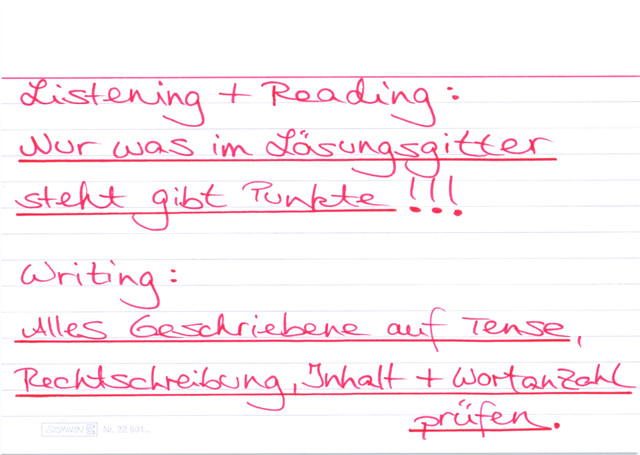 Listening + Reading:
Nur was im Lösungsgitter
steht gibt Punkte!!!
Writing:
Alles Geschriebene auf Tense,
Rechtschreibung, Inhalt + Wortanzahl
prüfen.
Nr. 22 501